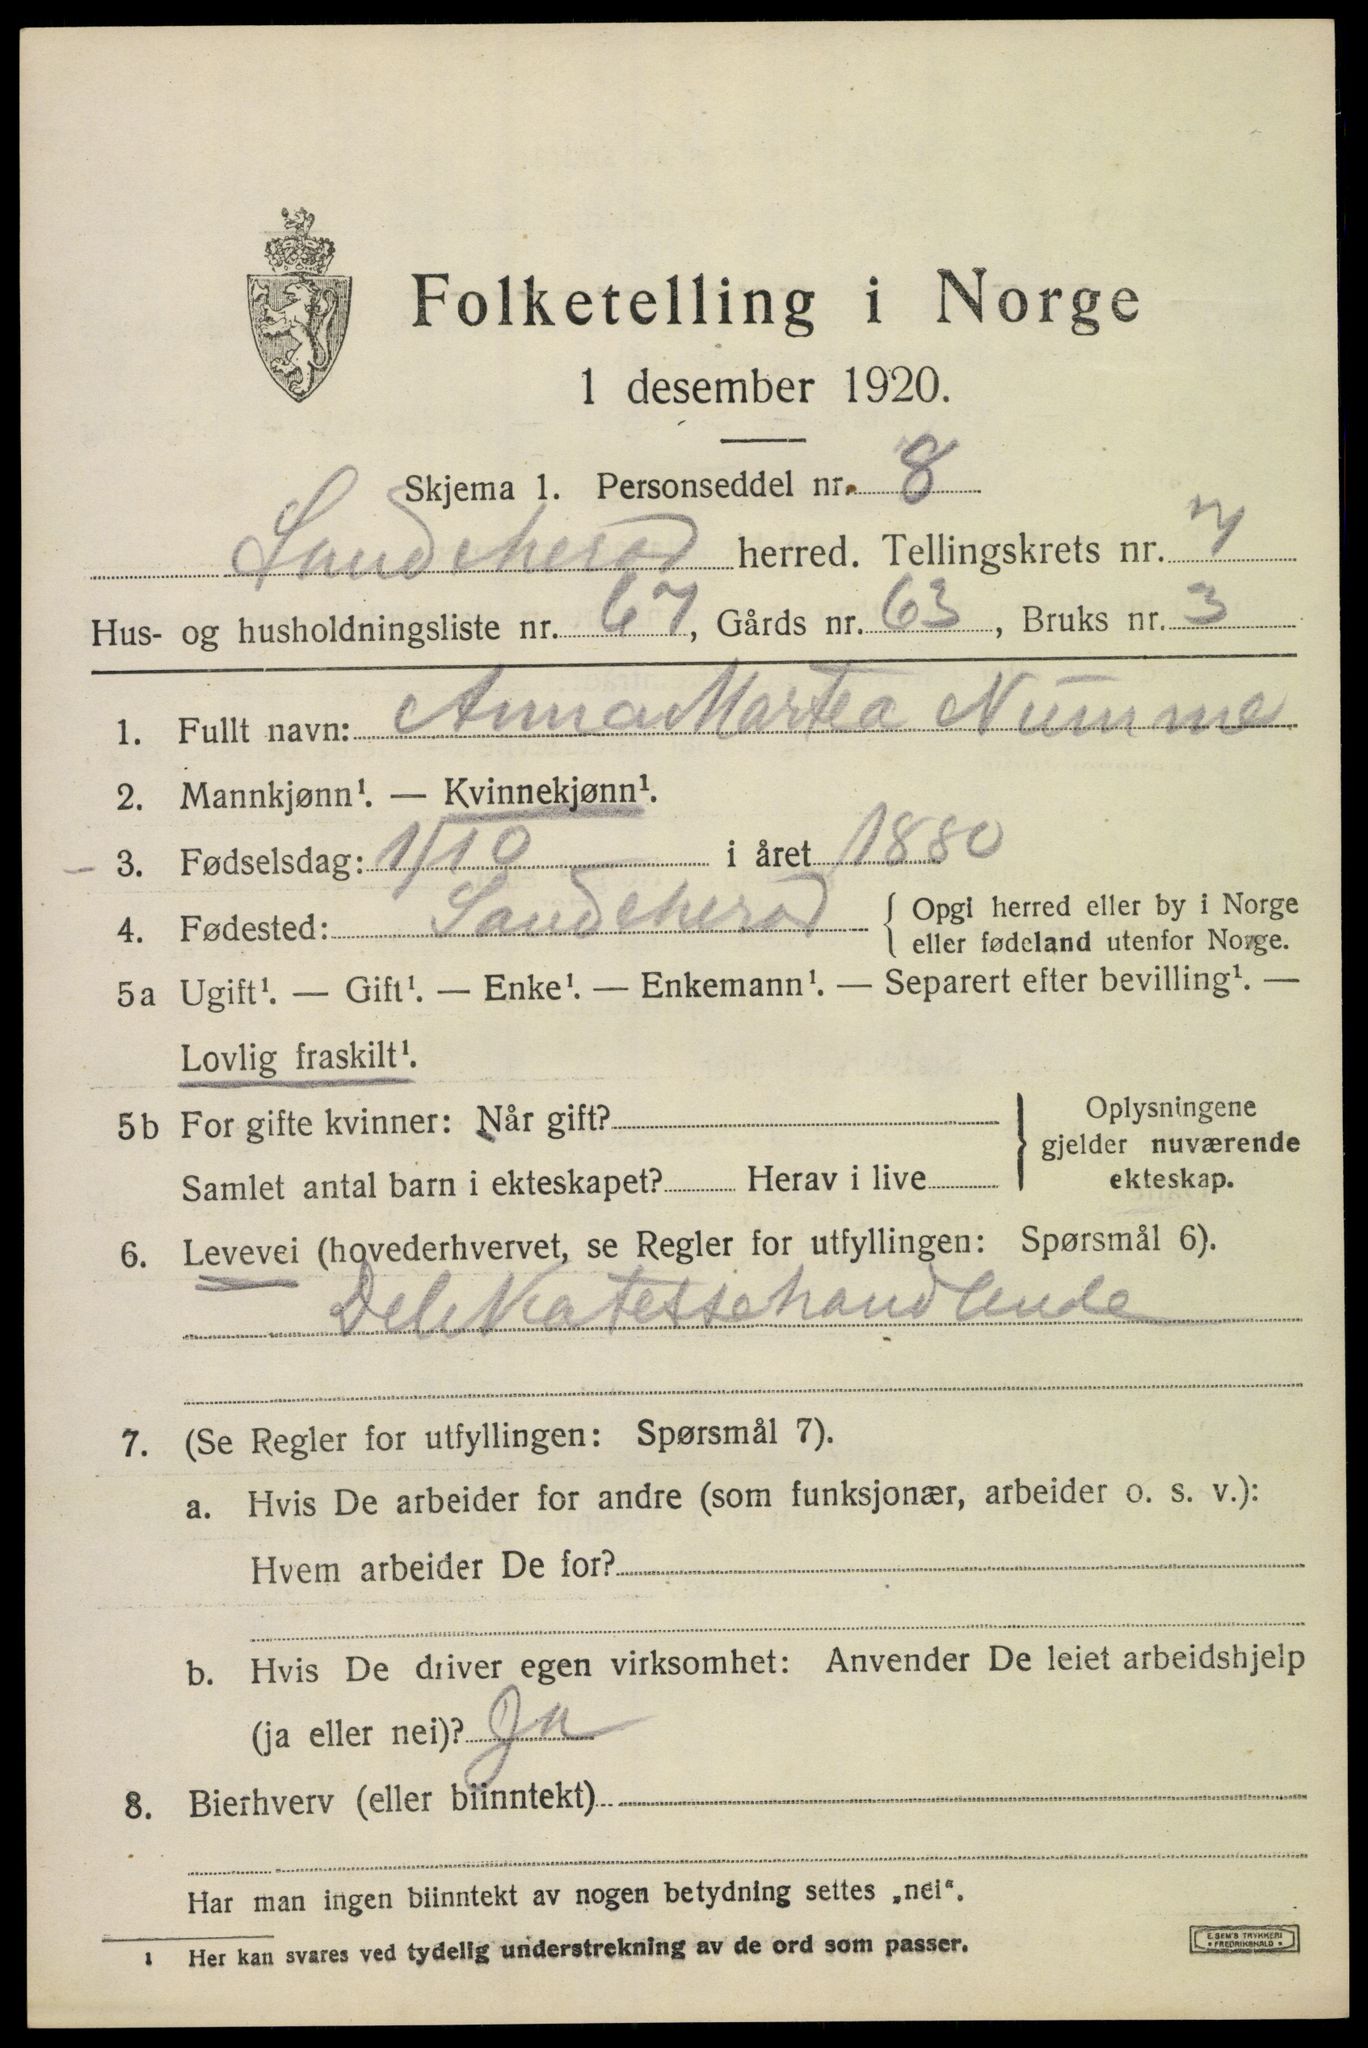 Folketelling i Norge
1 desember 1920.
Skjema 1. Personseddel nr. 8
Sandeherad herred. Tellingskrets nr. 7
Hus- og husholdningsliste nr. 67, Gårds nr. 63, Bruks nr. 3
1. Fullt navn: Anna Martea Numme
2. Mannkjønn¹. — Kvinnekjønn¹.
3. Fødselsdag: 1/10 i året 1880
4. Fødested: Sandeherad { Opgi herred eller by i Norge
eller fødeland utenfor Norge.
5a Ugift¹. — Gift¹. — Enke¹. — Enkemann¹. — Separert efter bevilling¹. —
Lovlig fraskilt¹.
5b For gifte kvinner: Når gift?
Samlet antal barn i ekteskapet? Herav i live
} Oplysningene
gjelder nuværende
ekteskap.
6. Levevei (hovederhvervet, se Regler for utfyllingen: Spørsmål 6).
Delikatessehandlende
7. (Se Regler for utfyllingen: Spørsmål 7).
a. Hvis De arbeider for andre (som funksjonær, arbeider o. s. v.):
Hvem arbeider De for?
b. Hvis De driver egen virksomhet: Anvender De leiet arbeidshjelp
(ja eller nei)? Ja
8. Bierhverv (eller biinntekt)
Har man ingen biinntekt av nogen betydning settes „nei“.
1 Her kan svares ved tydelig understrekning av de ord som passer.
E. SEM'S TRYKKERI
* FREDRIKSHALD *